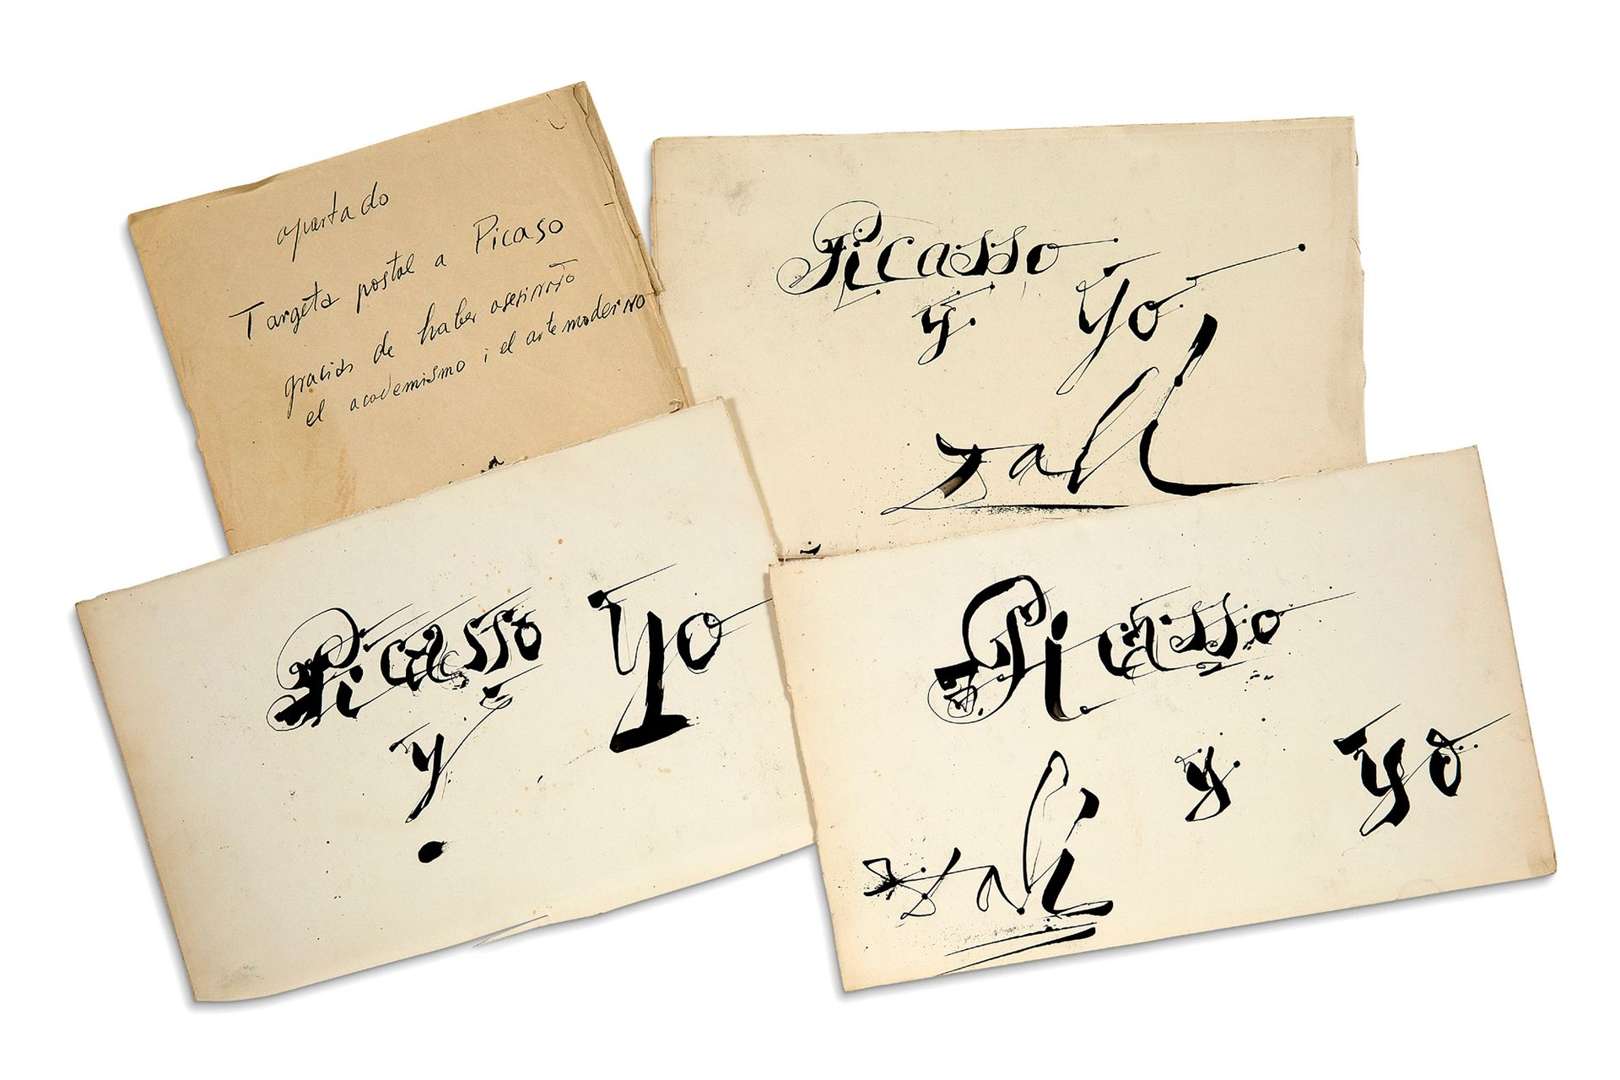 apartado
Targeta postal a Picaso
gracias de haber asesinato
el academismo i el arte moderno
Picasso
y yo
Dalí
Picasso Yo
y
Picasso
y yo
Dalí